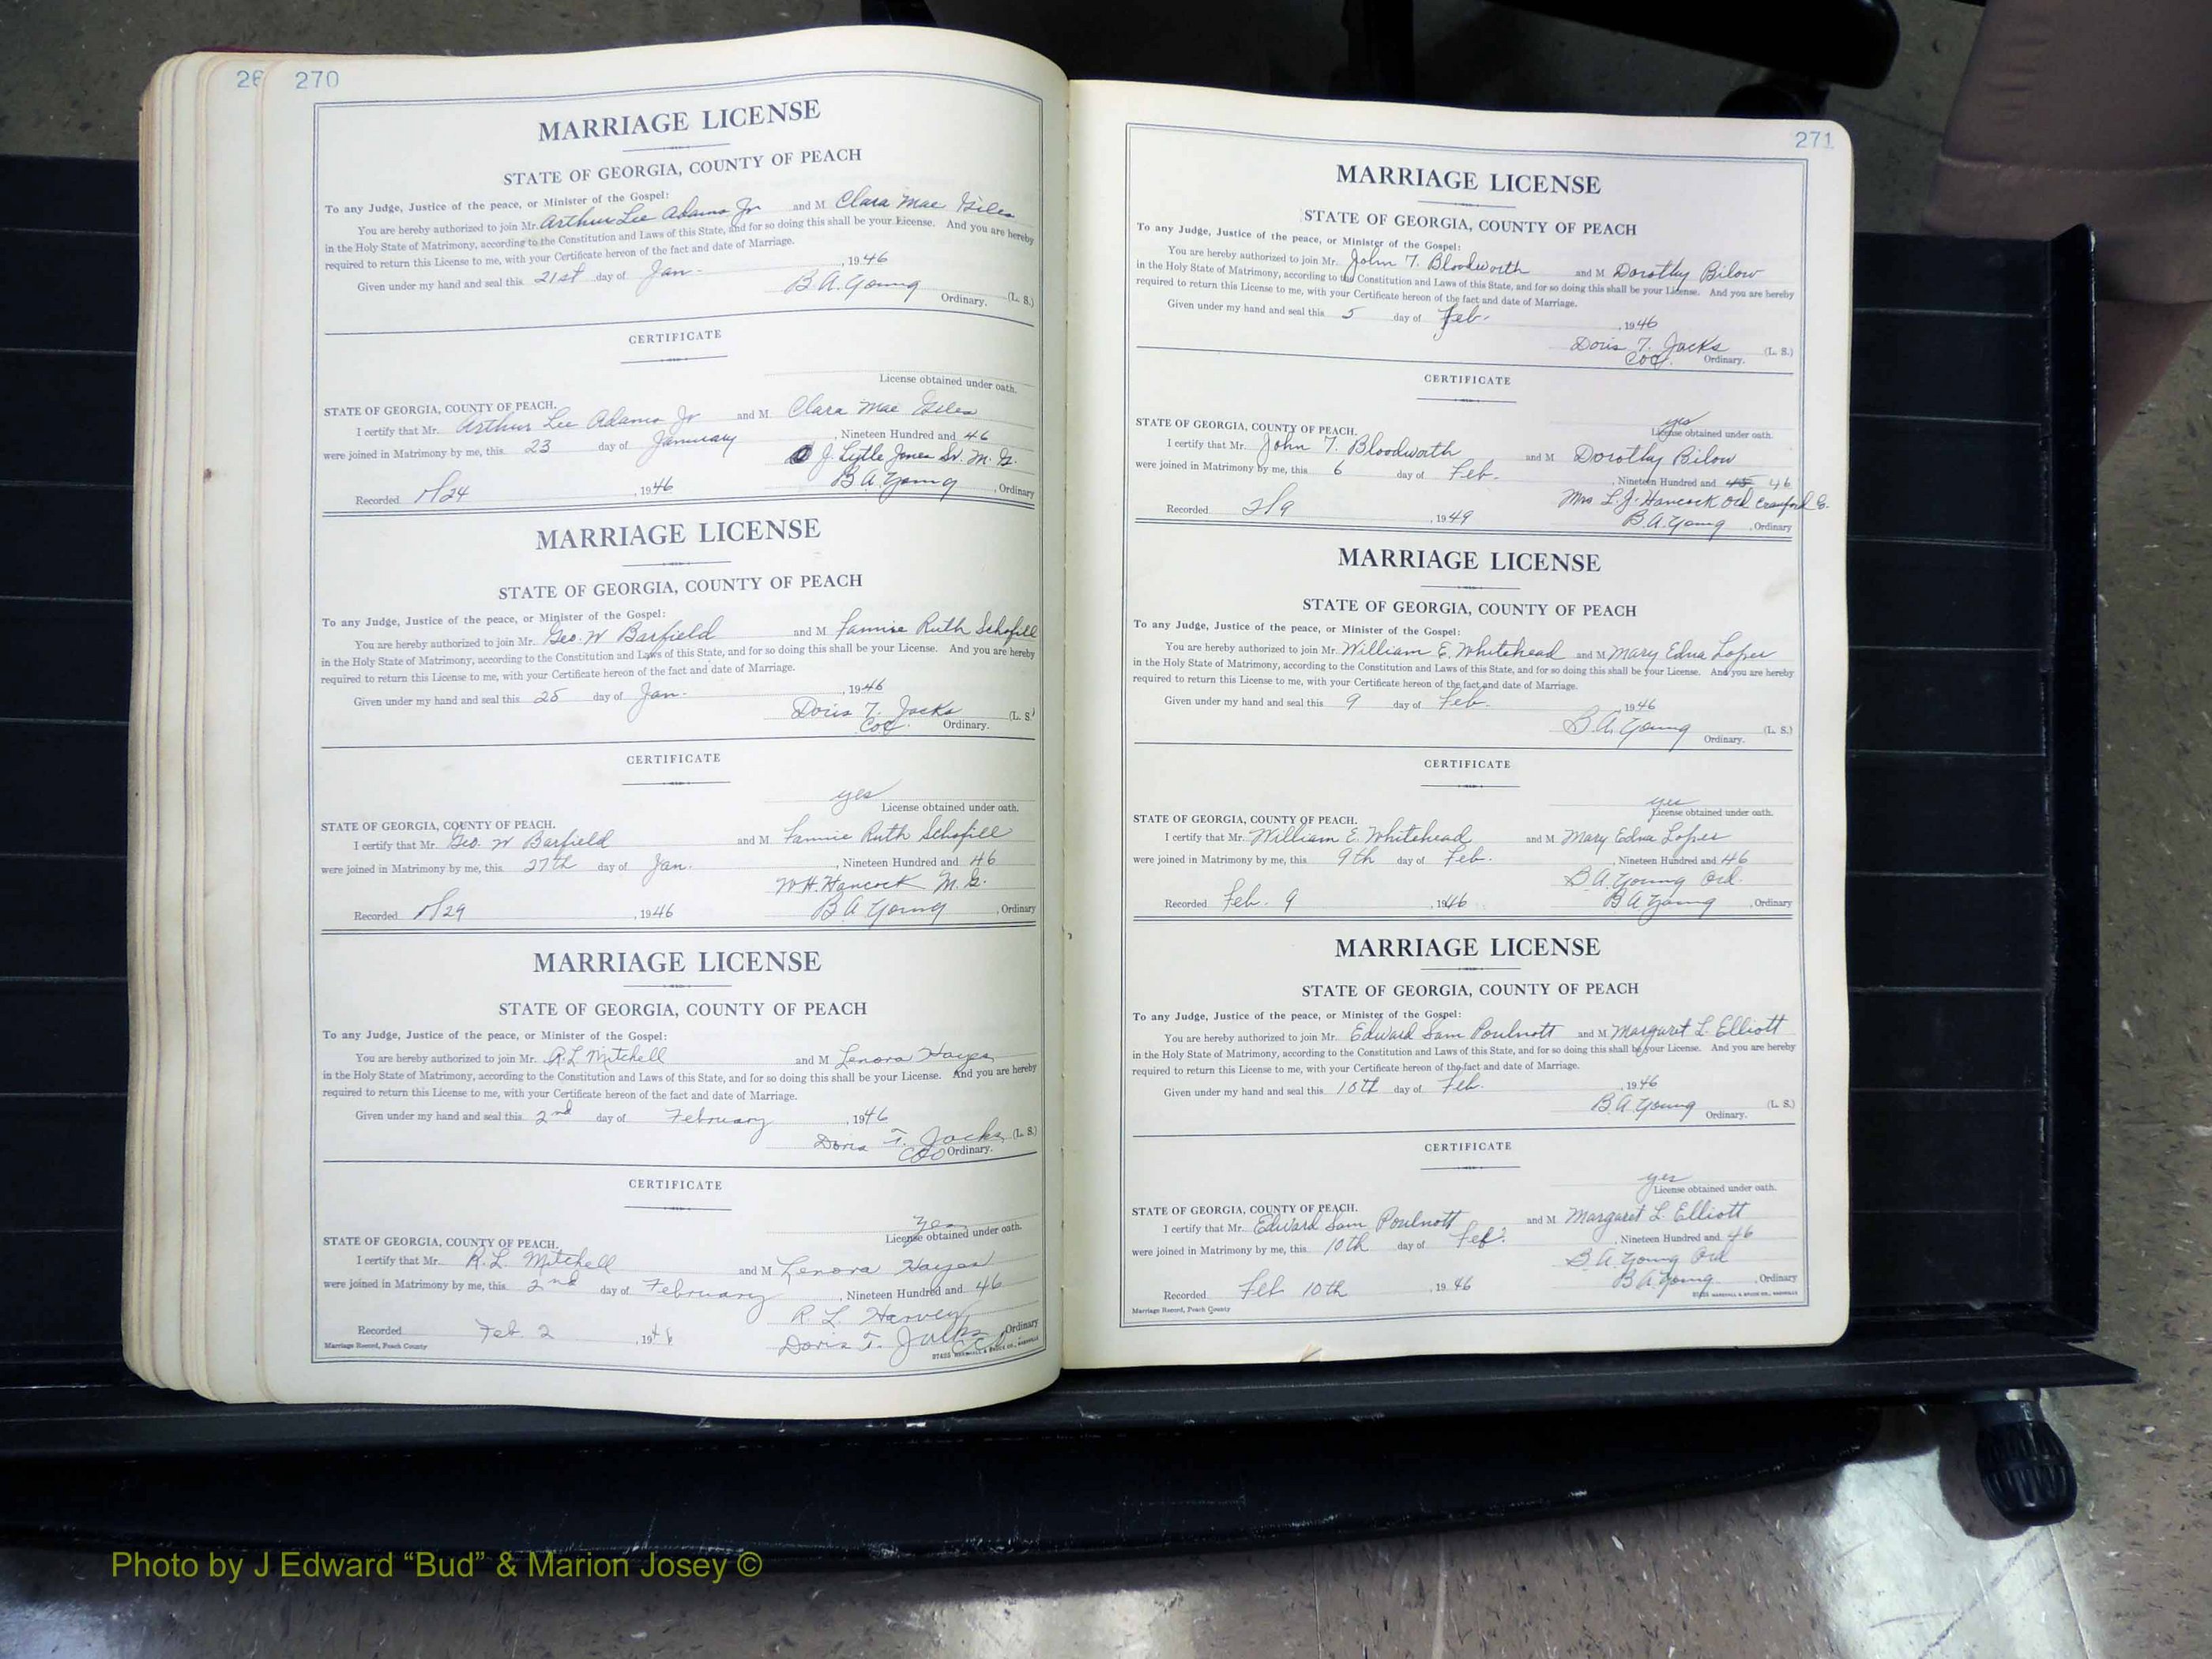 270
MARRIAGE LICENSE
STATE OF GEORGIA, COUNTY OF PEACH
To any Judge, Justice of the peace, or Minister of the Gospel:
You are hereby authorized to join Mr. Arthur Lee Adams Jr and M Clara Mae Giles
in the Holy State of Matrimony, according to the Constitution and Laws of this State, and for so doing this shall be your License. And you are hereby
required to return this License to me, with your Certificate hereon of the fact and date of Marriage.
Given under my hand and seal this 21st day of Jan- , 1946
B.A. Young (L. S.)
Ordinary.
CERTIFICATE
License obtained under oath.
STATE OF GEORGIA, COUNTY OF PEACH.
I certify that Mr. Arthur Lee Adams Jr and M. Clara Mae Giles
were joined in Matrimony by me, this 23 day of January , Nineteen Hundred and 46
J. Lytle Jones Sr. M. G.
Recorded 1/24 , 1946 B A. Young , Ordinary
MARRIAGE LICENSE
STATE OF GEORGIA, COUNTY OF PEACH
To any Judge, Justice of the peace, or Minister of the Gospel:
You are hereby authorized to join Mr. Geo. W Barfield and M Fannie Ruth Schofill
in the Holy State of Matrimony, according to the Constitution and Laws of this State, and for so doing this shall be your License. And you are hereby
required to return this License to me, with your Certificate hereon of the fact and date of Marriage.
Given under my hand and seal this 25 day of Jan. , 1946
Doris T. Jacks (L. S.)
Ordinary.
CERTIFICATE
yes
License obtained under oath.
STATE OF GEORGIA, COUNTY OF PEACH.
I certify that Mr. Geo. W Barfield and M Fannie Ruth Schofill
were joined in Matrimony by me, this 27th day of Jan. , Nineteen Hundred and 46
W.H. Hancock M. G.
Recorded 1/29 , 1946 B A Young , Ordinary
MARRIAGE LICENSE
STATE OF GEORGIA, COUNTY OF PEACH
To any Judge, Justice of the peace, or Minister of the Gospel:
You are hereby authorized to join Mr. R.L Mitchell and M Lenora Hayes
in the Holy State of Matrimony, according to the Constitution and Laws of this State, and for so doing this shall be your License. And you are hereby
required to return this License to me, with your Certificate hereon of the fact and date of Marriage.
Given under my hand and seal this 2nd day of February , 1946
Doris T. Jacks (L. S.)
Ordinary.
CERTIFICATE
Yes
License obtained under oath.
STATE OF GEORGIA, COUNTY OF PEACH.
I certify that Mr. R.L. Mitchell and M Lenora Hayes
were joined in Matrimony by me, this 2nd day of February , Nineteen Hundred and 46
R. L. Harvey
Recorded Feb. 2 , 19 Doris T. Jacks , Ordinary
Marriage Record, Peach County
271
MARRIAGE LICENSE
STATE OF GEORGIA, COUNTY OF PEACH
To any Judge, Justice of the peace, or Minister of the Gospel:
You are hereby authorized to join Mr. John T. Bloodworth and M Dorothy Bilow
in the Holy State of Matrimony, according to the Constitution and Laws of this State, and for so doing this shall be your License. And you are hereby
required to return this License to me, with your Certificate hereon of the fact and date of Marriage.
Given under my hand and seal this 5 day of Feb. , 1946
Doris T. Jacks (L. S.)
Ordinary.
CERTIFICATE
yes
License obtained under oath.
STATE OF GEORGIA, COUNTY OF PEACH.
I certify that Mr. John T. Bloodworth and M Dorothy Bilow
were joined in Matrimony by me, this 6 day of Feb. , Nineteen Hundred and 45 46
Mrs L.J. Hancock Ord Crawford
Recorded 2/9 , 1949 B.A. Young , Ordinary
MARRIAGE LICENSE
STATE OF GEORGIA, COUNTY OF PEACH
To any Judge, Justice of the peace, or Minister of the Gospel:
You are hereby authorized to join Mr. William E. Whitehead and M Mary Edna Loper
in the Holy State of Matrimony, according to the Constitution and Laws of this State, and for so doing this shall be your License. And you are hereby
required to return this License to me, with your Certificate hereon of the fact and date of Marriage.
Given under my hand and seal this 9 day of Feb. , 1946
B.A. Young (L. S.)
Ordinary.
CERTIFICATE
yes
License obtained under oath.
STATE OF GEORGIA, COUNTY OF PEACH.
I certify that Mr. William E. Whitehead and M Mary Edna Loper
were joined in Matrimony by me, this 9th day of Feb. , Nineteen Hundred and 46
B A. Young Ord.
Recorded Feb. 9 , 1946 B A Young , Ordinary
MARRIAGE LICENSE
STATE OF GEORGIA, COUNTY OF PEACH
To any Judge, Justice of the peace, or Minister of the Gospel:
You are hereby authorized to join Mr. Edward Sam Poulnott and M Margaret L. Elliott
in the Holy State of Matrimony, according to the Constitution and Laws of this State, and for so doing this shall be your License. And you are hereby
required to return this License to me, with your Certificate hereon of the fact and date of Marriage.
Given under my hand and seal this 10th day of Feb. , 1946
B.A. Young (L. S.)
Ordinary.
CERTIFICATE
yes
License obtained under oath.
STATE OF GEORGIA, COUNTY OF PEACH.
I certify that Mr. Edward Sam Poulnott and M Margaret L. Elliott
were joined in Matrimony by me, this 10th day of Feb. , Nineteen Hundred and 46
B A. Young Ord
Recorded Feb 10th , 1946 B A. Young , Ordinary
Marriage Record, Peach County
Photo by J Edward “Bud” & Marion Josey ©